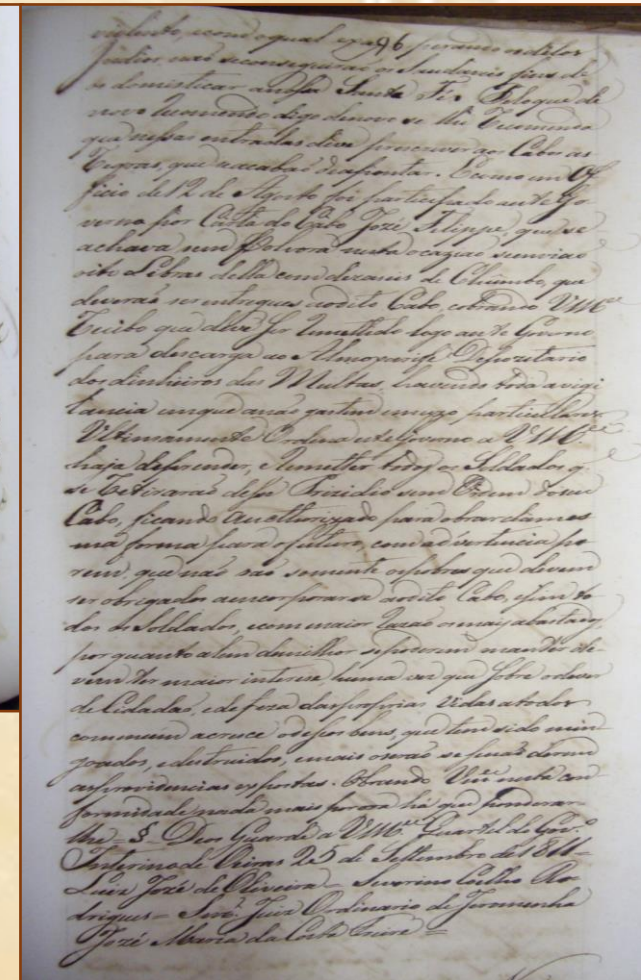 violento, com o qual exasperando os ditos
Indios, não se conseguirá os saudaveis fins de
os domesticar a nossa Santa Fé. Pelo que de
novo recomendo digo de novo se lhe recomenda
que nessas entradas deve prescrever ao Cabo as
regras, que se acabão de apontar. E como em Of
ficio de 12 de Agosto foi participado a este Go
verno por Carta do Cabo Jozé Filippe, que se
achava sem Polvora nesta ocazião se envião
oito Libras della com dezaseis de Chumbo, que
deverão ser entregues ao dito Cabo, cobrando VMce
Recibo que deve ser remettido logo a este Governo
para descarga ao Almoxarife Depozitario
dos dinheiros das Multas, havendo toda a vigi
lancia em que a não gastem em uzo particular
Ultimamente Ordena este Governo a VMce
haja de prender, e remetter todos os Soldados q.
se retirarão desse Prezidio sem Ordem do seu
Cabo, ficando authorizado para obrar da mes
ma forma para o futuro, com advertencia po
rem, que não são somente os pobres que devem
ser obrigados a encorporar-se ao dito Cabo, e sim to
dos os Soldados, e com maior razão os mais abastados
por quanto alem de melhor se poderem manter de
vem ter maior interesse, huma vez que sobre o dever
de Cidadão, e defeza das proprias Vidas a todos
commum acresce o de seos bens, que tem sido min
goados, e destruidos, e mais o serão se senão derem
as providencias expostas. Obrando Vmce nesta con
formidade nada mais por ora há que ponderar
lhe = § = Deos Guarde a VMce Quartel do Gov.o
Interino de Oeiras 25 de Settembro de 1811 =
Luiz Jozé de Oliveira = Severino Coelho Ro
drigues = Snr. Juiz Ordinario de Jeromenha
Jozé Maria da Costa Freire =